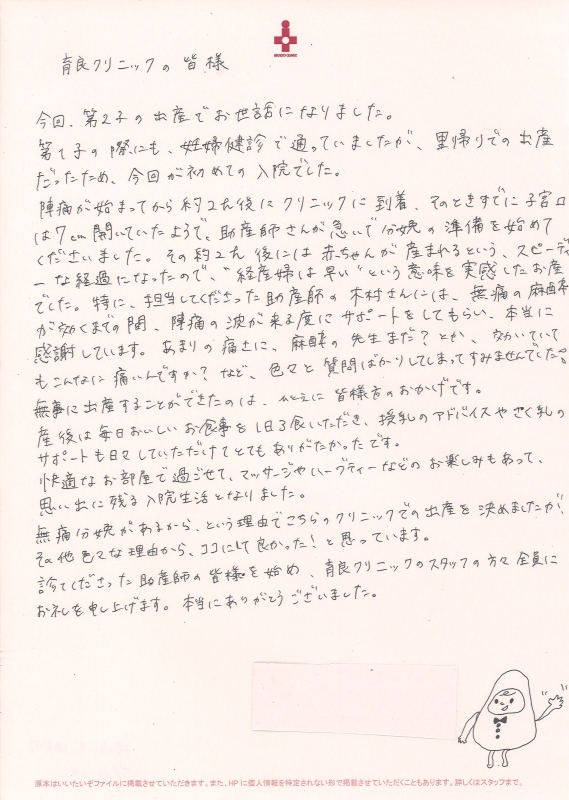 IKURYO CLINIC
育良クリニックの皆様
今回、第2子の出産でお世話になりました。
第1子の際にも、妊婦健診で通っていましたが、里帰りでの出産
だったため、今回が初めての入院でした。
陣痛が始まってから約2h後にクリニックに到着、そのときすでに子宮口
は7cm開いていたようで、助産師さんが急いで分娩の準備を始めて
くださいました。その約2h後には赤ちゃんが産まれるという、スピーディ
ーな経過になったので、"経産婦は早い"という意味を実感したお産
でした。特に、担当してくださった助産師の木村さんには、無痛の麻酔
が効くまでの間、陣痛の波が来る度にサポートをしてもらい、本当に
感謝しています。あまりの痛さに、麻酔の先生まだ?とか、効いていて
もこんなに痛いんですか?など、色々と質問ばかりしてしまってすみませんでした。
無事に出産することができたのは、ひとえに皆様方のおかげです。
産後は毎日おいしいお食事を1日3食いただき、授乳のアドバイスやさく乳の
サポートも日々していただけてとてもありがたかったです。
快適なお部屋で過ごせて、マッサージやハーブティーなどのお楽しみもあって、
思い出に残る入院生活となりました。
無痛分娩があるから、という理由でこちらのクリニックでの出産を決めましたが、
その他色々な理由から、ココにして良かった!と思っています。
診てくださった助産師の皆様を始め、育良クリニックのスタッフの方々全員に
お礼を申し上げます。本当にありがとうございました。
原本はいいたいぞファイルに掲載させていただきます。また、HPに個人情報を特定されない形で掲載させていただくこともあります。詳しくはスタッフまで。